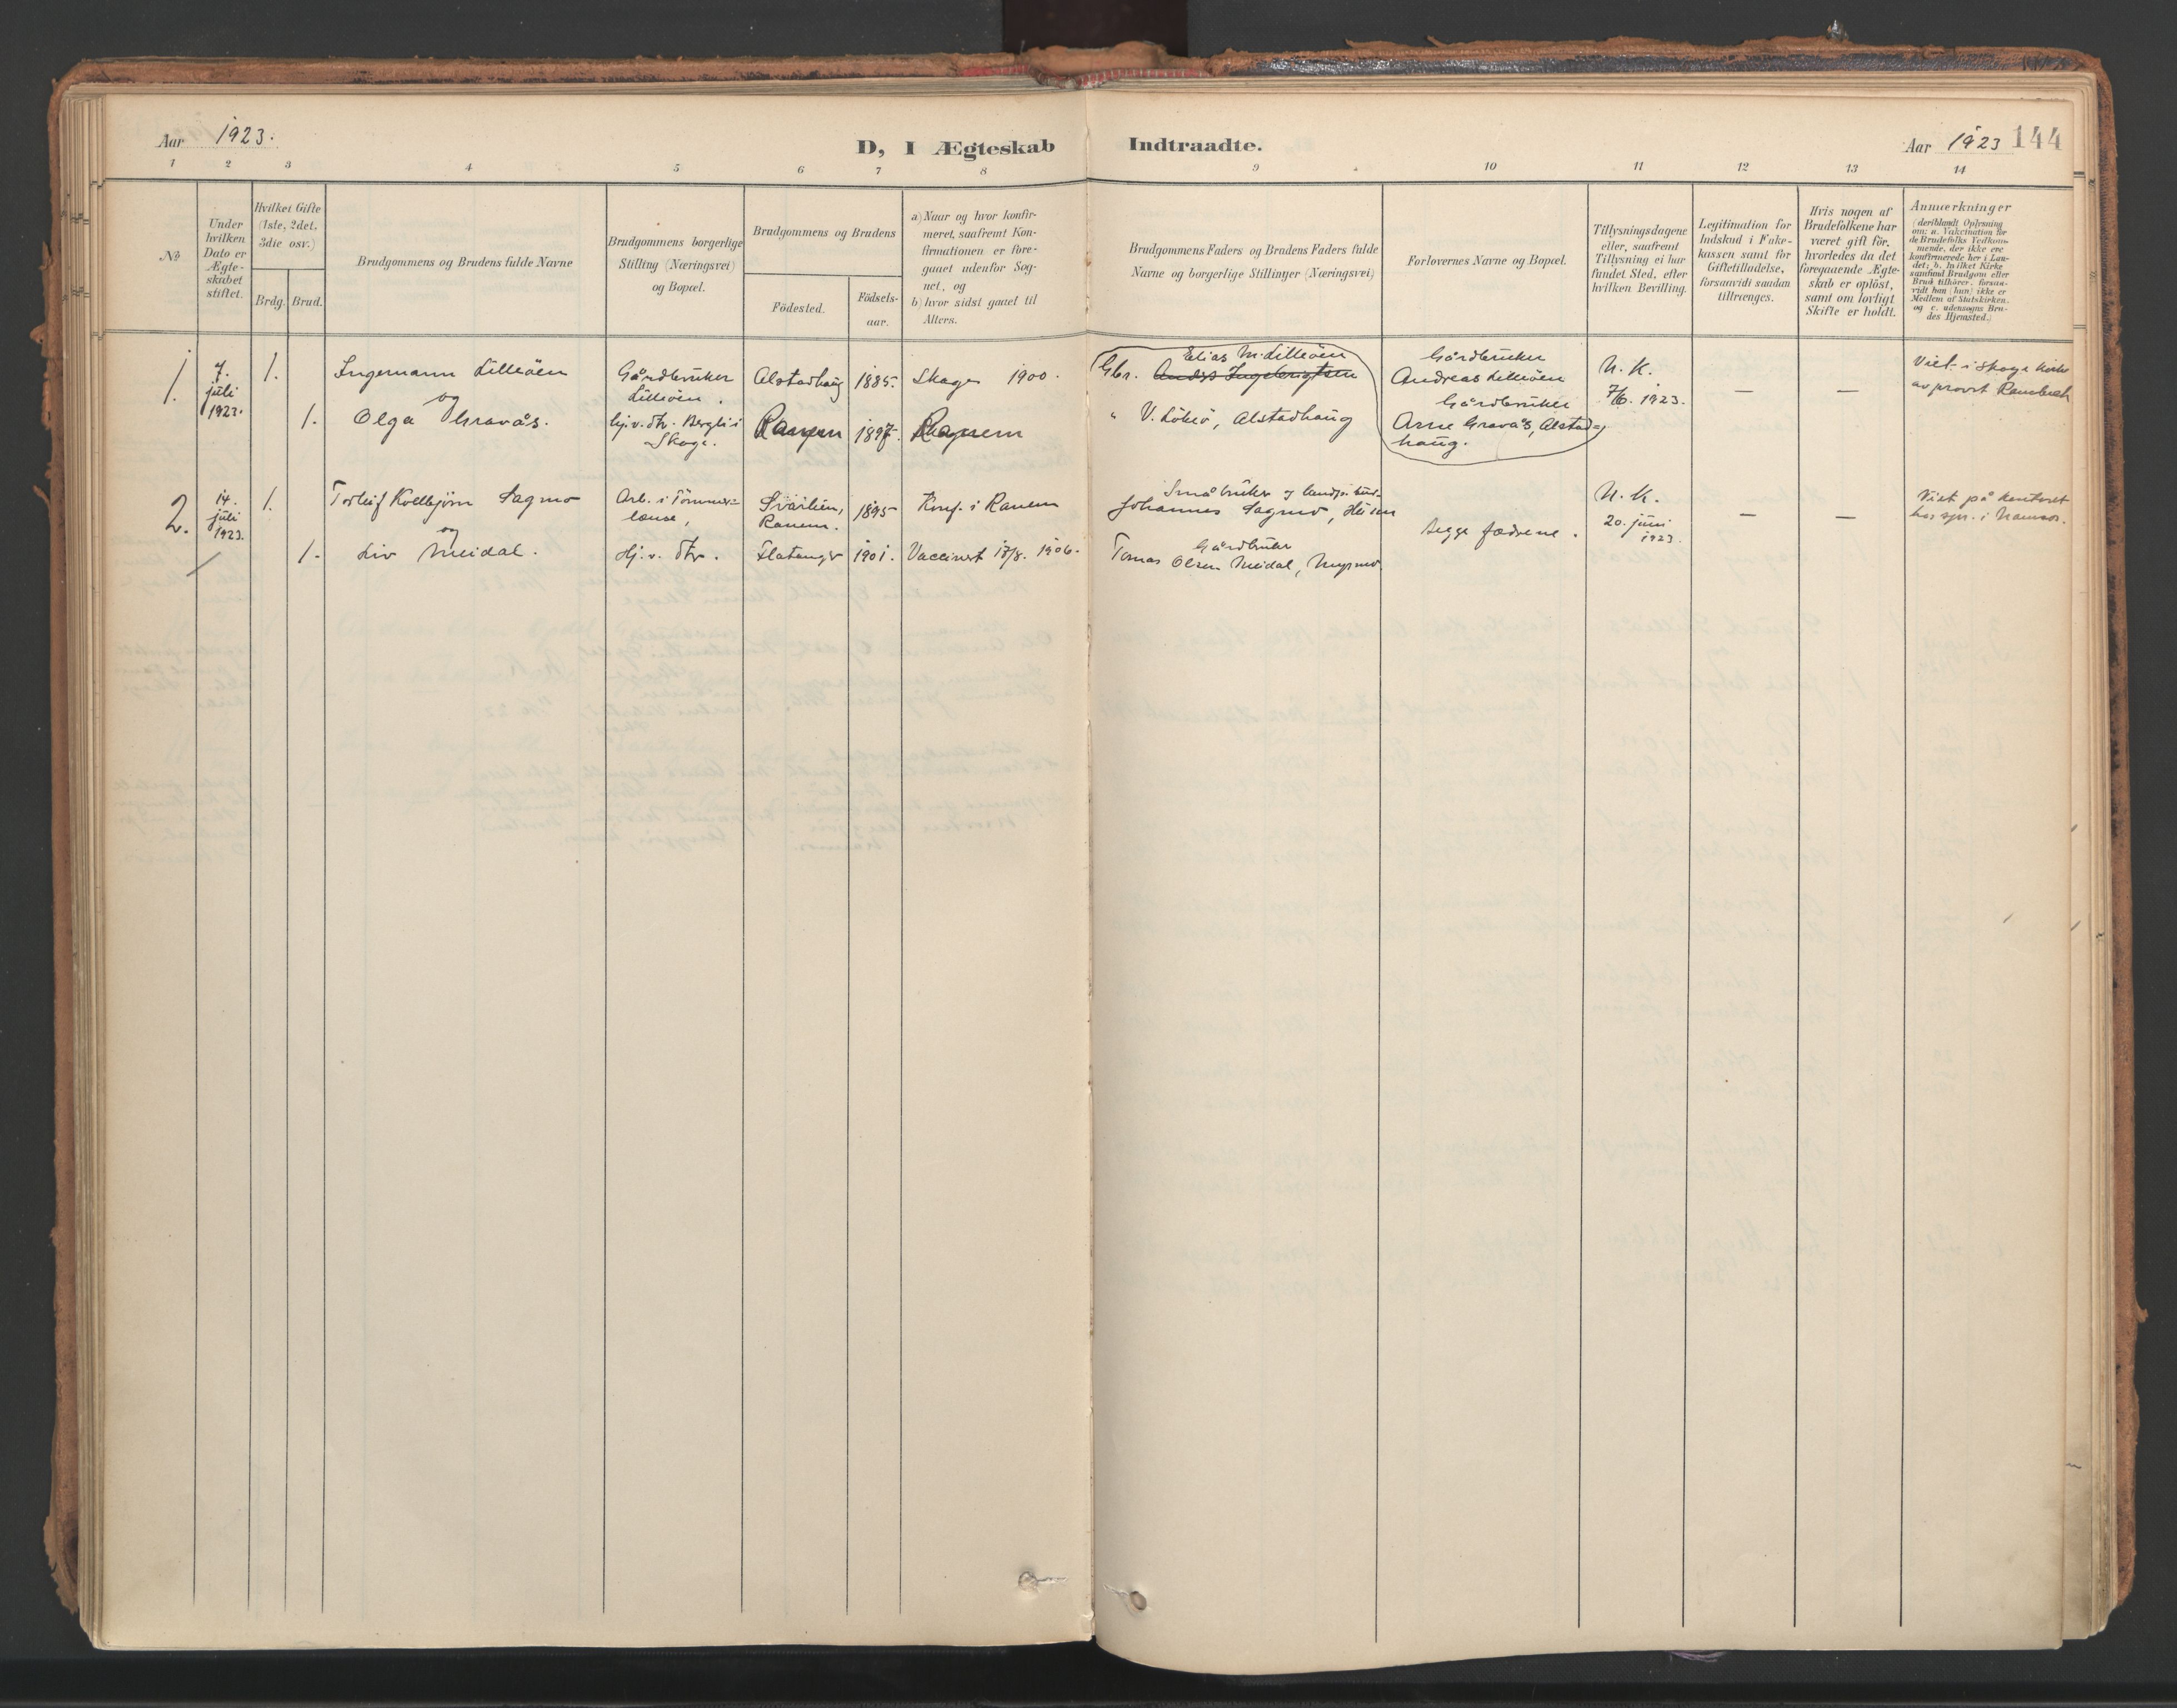 Aar 1923.
D, I Ægteskab Indtraadte.
Aar 1923 144
1 2 3 4 5 6 7 8 9 10 11 12 13 14
No
Under
hvilken
Dato er
Ægte-
skabet
stiftet.
Hvilket Gifte
(1ste, 2det,
3die osv.)
Brdg. Brud.
Brudgommens og Brudens fulde Navne
Brudgommens borgerlige
Stilling (Næringsvei)
og Bopæl.
Brudgommens og Brudens
Födested.
Födsels-
aar.
a) Naar og hvor konfir-
meret, saafremt Kon-
firmationen er fore-
gaaet udenfor Sog-
net, og
b) hvor sidst gaaet til
Alters.
Brudgommens Faders og Brudens Faders fulde
Navne og borgerlige Stillinger (Næringsvei)
Forlovernes Navne og Bopæl.
Tillysningsdagene
eller, saafremt
Tillysning ei har
fundet Sted, efter
hvilken Bevilling.
Legitimation for
Indskud i Enke-
kassen samt for
Giftetilladelse,
forsaavidt saadan
tiltrænges.
Hvis nogen af
Brudefolkene har
været gift för,
hvorledes da det
foregaaende Ægte-
skab er oplöst,
samt om lovligt
Skifte er holdt.
Anmærkninger
(deriblandt Oplysning
om: a. Vakcination for
de Brudefolks Vedkom-
mende, der ikke ere
konfirmerede her i Lan-
det; b. hvilket Kirke
samfund Brudgom eller
Brud tilhører, forsaa-
vidt han (hun) ikke er
Medlem af Statskirken,
og c. udensogns Bru-
des Hjemsted.)
1.
7.
juli
1923.
1.
Ingemann Lilleöen
og
1. Olga Gravås.
Gårdbruker
Lilleöen.
hj.v. dtr. Bergli i
Skage.
Alstadhaug 1885. Skage 1900.
Ranem 1897. Ranem
Elias M. Lilleöen
Gbr. Anders Ingebrigtsen
" V. Lökvö, Alstadhaug
Gårdbruker
Andreas Lilleöen
Gårdbruker
Arne Gravås, Alstad=
haug.
N. K.
7/6. 1923.
— —
Viet i Skage kirke
av provst
2.
14.
juli
1923.
1.
Torleif Kolbjörn Sagmo
og
1. Liv Meidal.
Arb. i Tömmer=
lense,
Hj. v. dtr.
Svarlien,
Ranem. 1895 Konf. i Ranem
Flatanger 1901. Vaccinert 17/8. 1906.
Småbruker og
Johannes Sagmo,
Gårdbruker
Tomas Olsen Meidal,
begge fædrene.
N. K.
20. juni
1923.
— —
Viet på kontoret
hos spr. i Namsos.